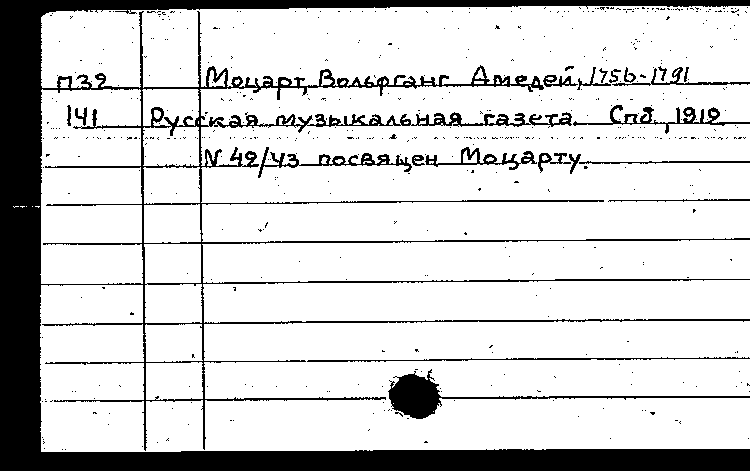 П39 Моцарт, Вольфганг Амедей, 1756-1791
141 Русская музыкальная газета. Спб, 1919
N 42/43 посвящен Моцарту.